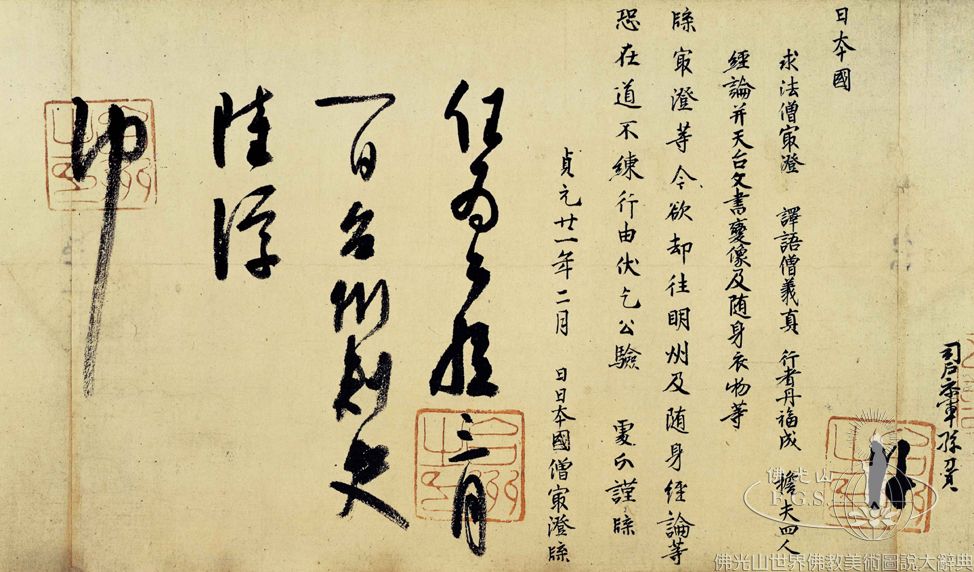 司戶参軍孫
日本國
求法僧㝡澄 譯語僧義真 行者丹福成 擔夫四人
經論并天台文書變像及随身衣物等
牒㝡澄等今欲却往明州及随身經論等
恐在道不練行由伏乞公驗 處分謹牒
貞元廿一年二月 日日本國僧㝡澄牒
任為公驗三月
一日台州刺史
陸淳
印
佛光山
F.G.S.
佛光山世界佛教美術圖說大辭典